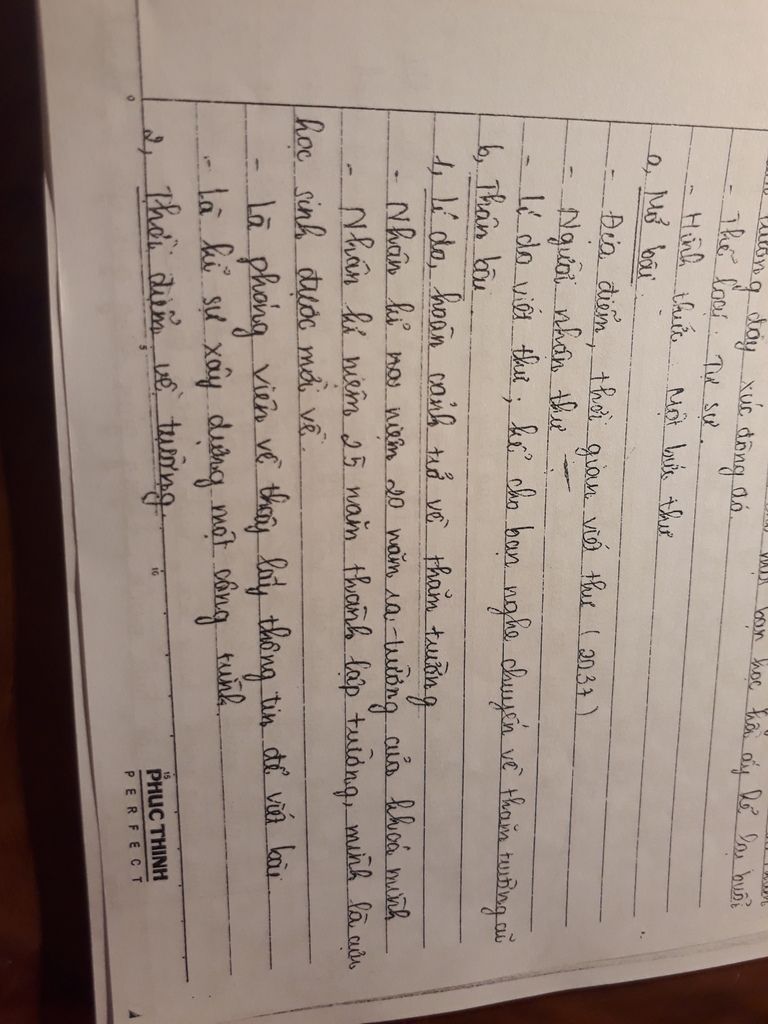 bạn học hồi ấy kể lại buổi
trường đầy xúc động đó.
- Thể loại: Tự sự.
- Hình thức: Một bức thư
a, Mở bài:
- Địa điểm, thời gian viết thư (2037)
- Người nhận thư
- Lí do viết thư; kể cho bạn nghe chuyến về thăm trường cũ
b, Thân bài
1, Lí do, hoàn cảnh trở về thăm trường
- Nhân kỉ niệm 20 năm ra trường của khoá mình
- Nhân kỉ niệm 25 năm thành lập trường, mình là cựu
học sinh được mời về.
- Là phóng viên về thầy lấy thông tin để viết bài.
- Là kĩ sư xây dựng một công trình.
2, Thời điểm về trường.
0 5 10 15
PHUC THINH
PERFECT